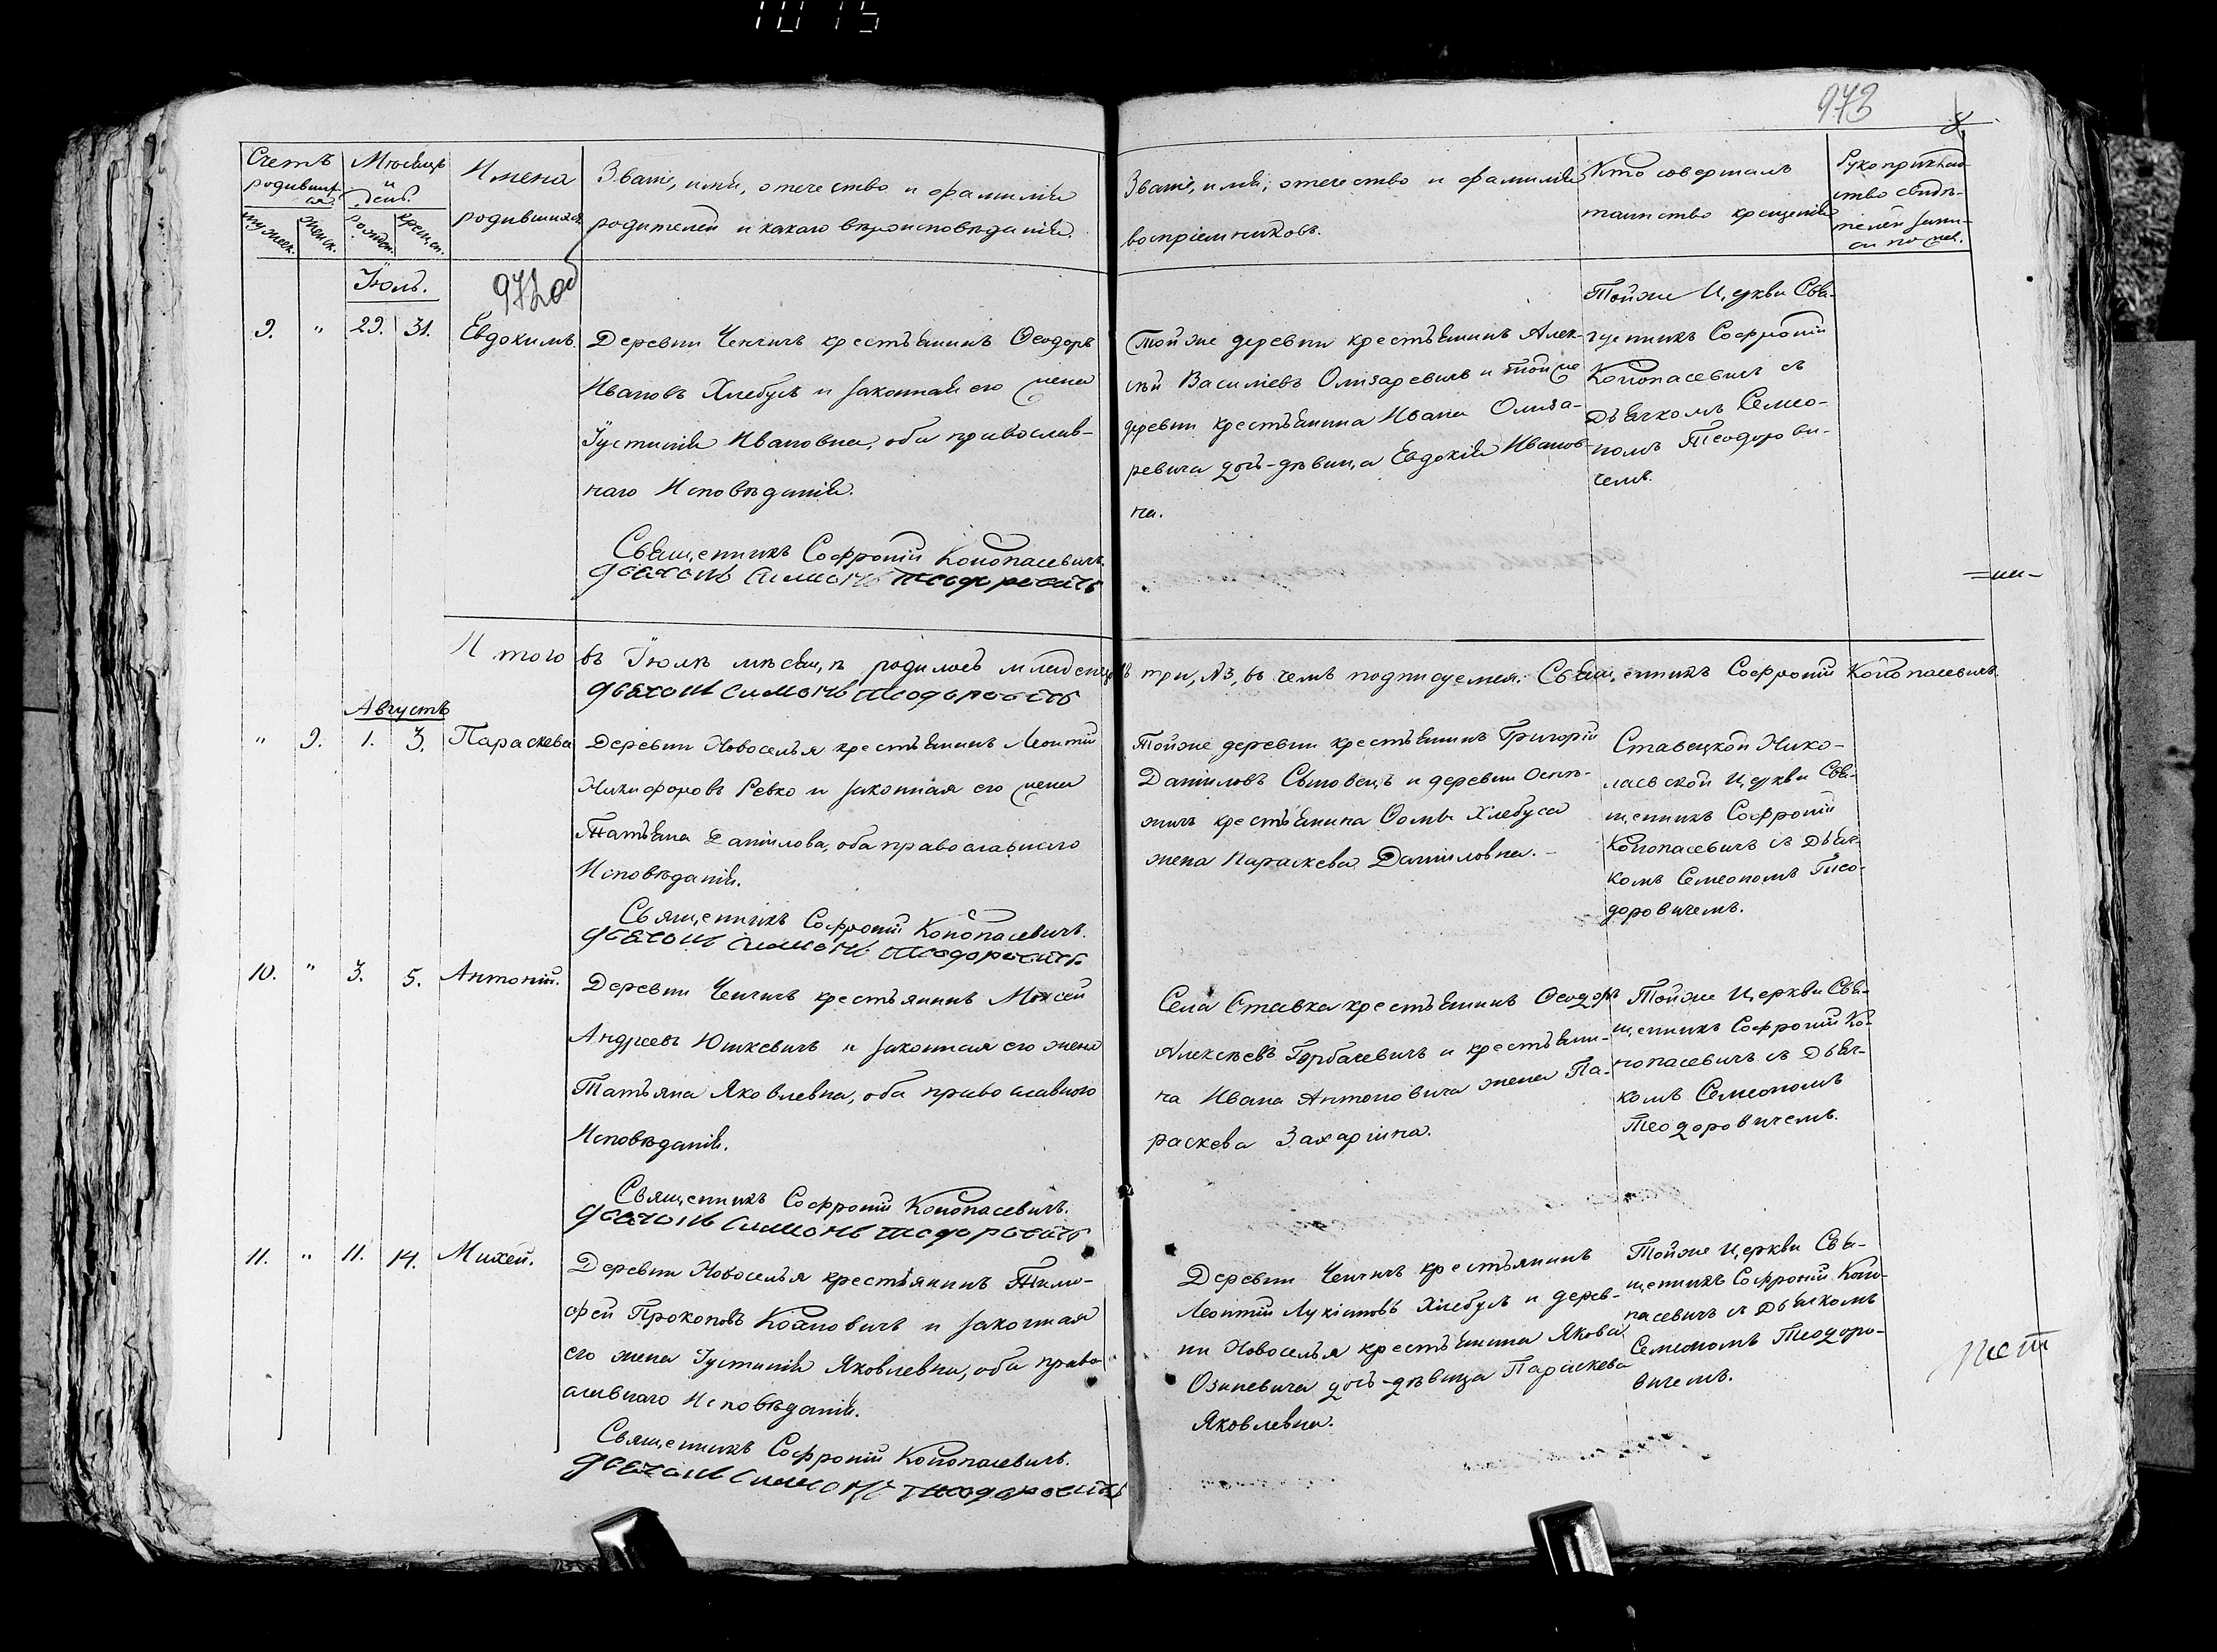 1015
973
8
Счетъ родившихся.
Мѣсяцъ и день.
мужеск.
женск.
рожден.
крещен.
Имена
родившихся.
Званіе, имя, отечество и фамилія
родителей и какого вѣроисповѣданія.
Званіе, имя, отечество и фамилія
воспріемниковъ.
Кто совершалъ
таинство крещенія
Рукоприклад-
ство свидѣ-
телей запи-
си по жел.
Іюль.
972об
9. " 29. 31. Евдокимъ.
Деревни Ченчичъ крестьянинъ Ѳеодоръ
Ивановъ Хлебусъ и законная его жена
Іустинія Ивановна, оба православ-
наго Исповѣданія.
Священникъ Софроній Конопасевичъ.
Дьячокъ Симонъ Теодоровичъ
Тойже деревни крестьянинъ Алек-
сѣй Василіевъ Олизаревичъ и тойже
деревни крестьянина Ивана Олиза-
ревича дочь-дѣвица Евдокія Иванов-
на.
Тойже Церкви Свя-
щенникъ Софроній
Конопасевичъ съ
Дьячкомъ Семео-
номъ Теодорови-
чемъ.
Итого въ Іюлѣ мѣсяцѣ родилось младенцовъ три, №3, въ чемъ подписуемся: Священникъ Софроній Конопасевичъ.
Дьячокъ Симонъ Теодоровичъ
Августъ
" 9. 1. 3. Параскева
Деревни Новоселья крестьянинъ Леонтій
Никифоровъ Ревко и законная его жена
Татьяна Даніилова, оба православнаго
Исповѣданія.
Священникъ Софроній Конопасевичъ.
Дьячокъ Симонъ Теодоровичъ
Тойже деревни крестьянинъ Григорій
Даніиловъ Сытовецъ и деревни
крестьянина Ѳомы Хлебуса
жена Параскева Даниловна.-
Ставецкой Нико-
лаевской Церкви Свя-
щенникъ Софроній
Конопасевичъ съ Дьяч-
комъ Семеономъ Тео-
доровичемъ.
10. " 3. 5. Антоній.
Деревни Ченчичъ крестьянинъ Моисей
Андреевъ Юшкевичъ и законная его жена
Татьяна Яковлевна, оба православнаго
Исповѣданія.
Священникъ Софроній Конопасевичъ.
Дьячокъ Симонъ Теодоровичъ
Села Ставка крестьянинъ Ѳеодоръ
Алексѣевъ Горбачевичъ и крестьяни-
на Ивана Антоновича жена Па-
раскева Захаріина.
Тойже Церкви Свя-
щенникъ Софроній Ко-
нопасевичъ съ Дьяч-
комъ Семеономъ
Теодоровичемъ.
11. " 11. 14. Михей.
Деревни Новоселья крестьянинъ Тимо-
фей Прокоповъ Коановичъ и законная
его жена Іустинія Яковлевна, оба право-
славнаго Исповѣданія.
Священникъ Софроній Конопасевичъ.
Дьячокъ Симонъ Теодоровичъ
Деревни Ченчичъ крестьянинъ
Леонтій Лукіановъ Хлебусъ и дерев-
ни Новоселья крестьянина Якова
Озиневича дочь-дѣвица Параскева
Яковлевна.
Тойже Церкви Свя-
щенникъ Софроній Коно-
пасевичъ съ Дьячкомъ
Семеономъ Теодоро-
вичемъ.